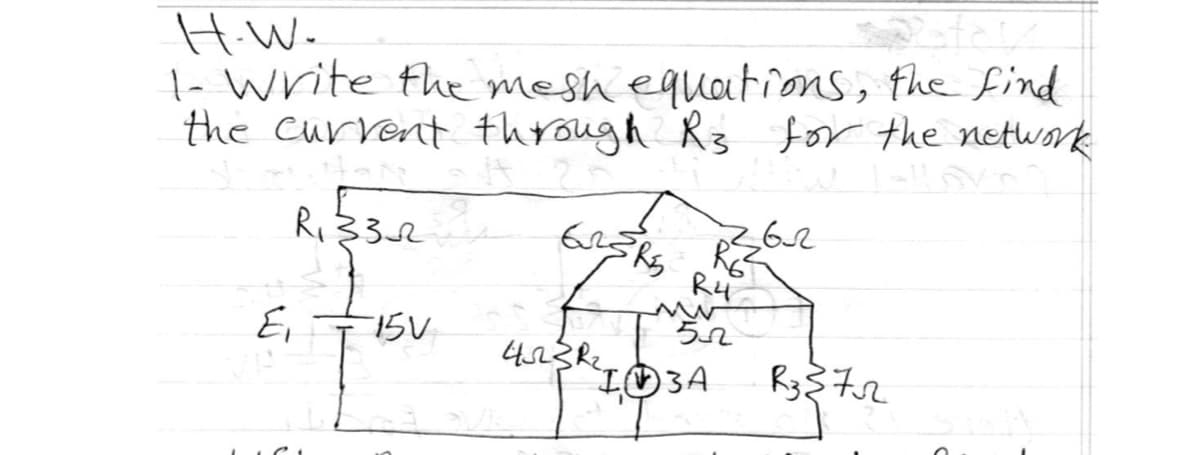 H.W.
1- Write the mesh equations, the find
the current through R3 for the network
R1 3Ω
6Ω R5
R6 6Ω
R4
5Ω
E1 15V
4Ω R2
I1 3A
R3 7Ω